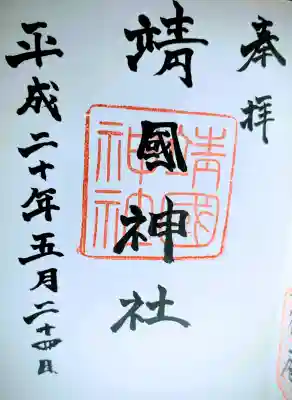 奉拝
靖國神社
靖國
神社
平成二十年五月二十四日